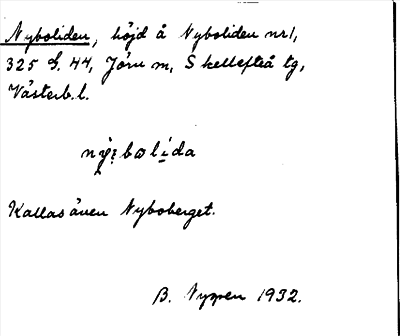 Nyboliden, höjd å Nyboliden nr 1,
325 S. 44, Jörn sn, Skellefteå tg,
Västerb. l.
Kallas även Nyboberget.
B. Nygren 1932.